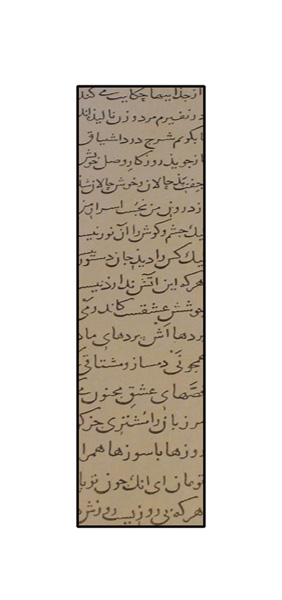 از جداییها حکایت می کند
در نفیرم مرد و زن نالیده اند
تا بکویم شرح درد اشتیاق
باز جوید روزکار وصل خویش
جفت بدحالان و خوش حالان شد
از درون من نجست اسرار من
لیک چشم و کوش را آن نور نیس
لیک کس را دید جان دستور
هرکه این آتش ندارد نیس
جوشش عشقست کاندر می
پردهااش پردهای ما
همچو نی دمساز و مشتاقی
قصهای عشق مجنون می
مر زبان را مشتری جز ک
روزها با سوزها همرا
تو بمان ای انک چون تو پا
هرکه بی روزیست روزش